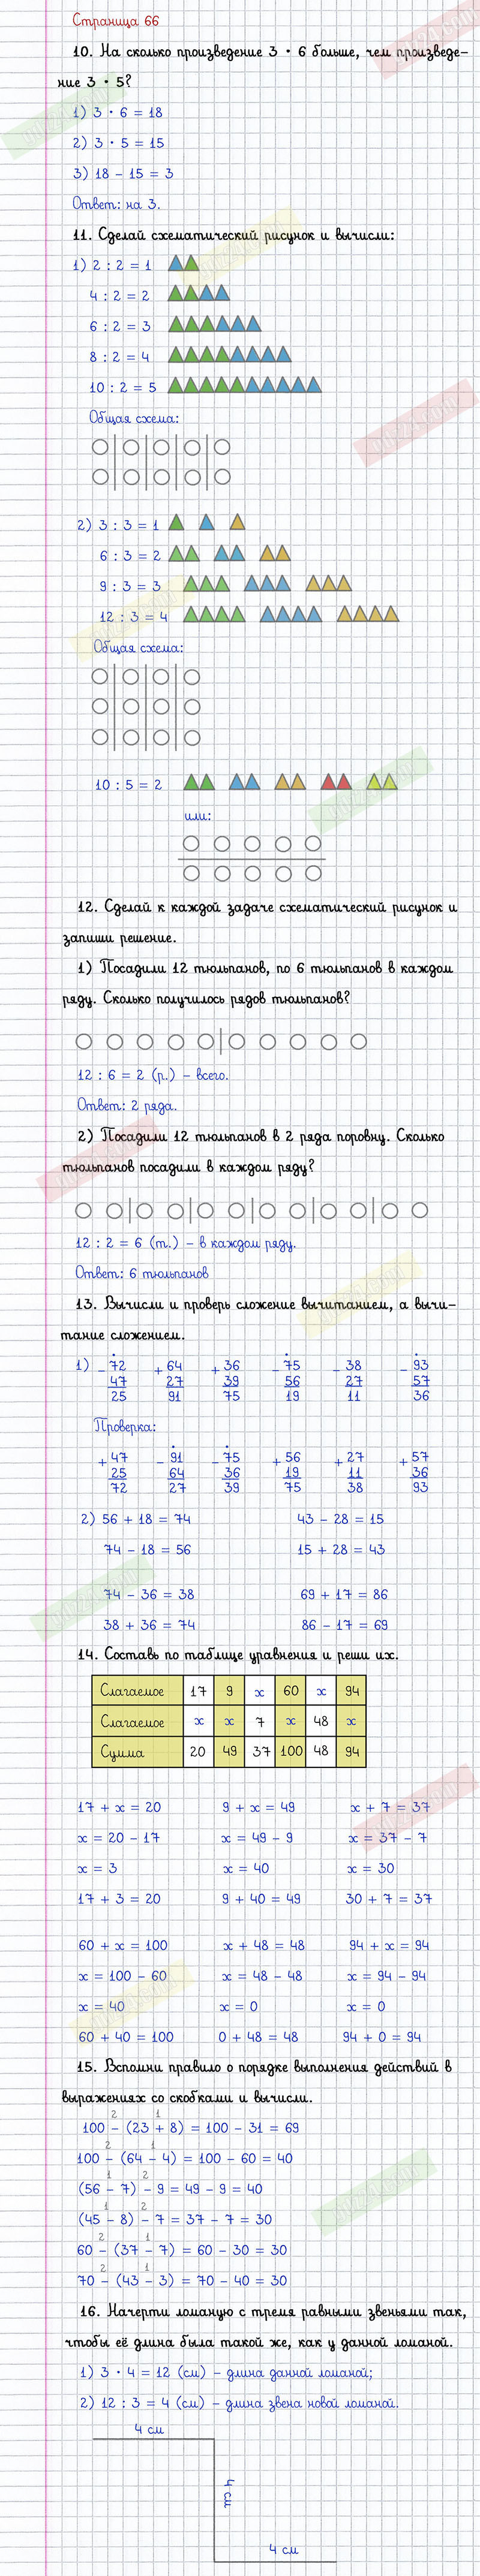 Страница 66
10. На сколько произведение 3 · 6 больше, чем произведе-
ние 3 · 5?
1) 3 · 6 = 18
2) 3 · 5 = 15
3) 18 - 15 = 3
Ответ: на 3.
11. Сделай схематический рисунок и вычисли:
1) 2 : 2 = 1
4 : 2 = 2
6 : 2 = 3
8 : 2 = 4
10 : 2 = 5
Общая схема:
2) 3 : 3 = 1
6 : 3 = 2
9 : 3 = 3
12 : 3 = 4
Общая схема:
10 : 5 = 2
или:
12. Сделай к каждой задаче схематический рисунок и
запиши решение.
1) Посадили 12 тюльпанов, по 6 тюльпанов в каждом
ряду. Сколько получилось рядов тюльпанов?
12 : 6 = 2 (р.) - всего.
Ответ: 2 ряда.
2) Посадили 12 тюльпанов в 2 ряда поровну. Сколько
тюльпанов посадили в каждом ряду?
12 : 2 = 6 (т.) - в каждом ряду.
Ответ: 6 тюльпанов
13. Вычисли и проверь сложение вычитанием, а вычи-
тание сложением.
1) - 72 + 64 + 36 - 75 - 38 - 93
47 27 39 56 27 57
25 91 75 19 11 36
Проверка:
+ 47 - 91 - 75 + 56 + 27 + 57
25 64 36 19 11 36
72 27 39 75 38 93
2) 56 + 18 = 74 43 - 28 = 15
74 - 18 = 56 15 + 28 = 43
74 - 36 = 38 69 + 17 = 86
38 + 36 = 74 86 - 17 = 69
14. Составь по таблице уравнения и реши их.
Слагаемое 17 9 x 60 x 94
Слагаемое x x 7 x 48 x
Сумма 20 49 37 100 48 94
17 + x = 20 9 + x = 49 x + 7 = 37
x = 20 - 17 x = 49 - 9 x = 37 - 7
x = 3 x = 40 x = 30
17 + 3 = 20 9 + 40 = 49 30 + 7 = 37
60 + x = 100 x + 48 = 48 94 + x = 94
x = 100 - 60 x = 48 - 48 x = 94 - 94
x = 40 x = 0 x = 0
60 + 40 = 100 0 + 48 = 48 94 + 0 = 94
15. Вспомни правило о порядке выполнения действий в
выражениях со скобками и вычисли.
2 1
100 - (23 + 8) = 100 - 31 = 69
2 1
100 - (64 - 4) = 100 - 60 = 40
1 2
(56 - 7) - 9 = 49 - 9 = 40
1 2
(45 - 8) - 7 = 37 - 7 = 30
2 1
60 - (37 - 7) = 60 - 30 = 30
2 1
70 - (43 - 3) = 70 - 40 = 30
16. Начерти ломаную с тремя равными звеньями так,
чтобы её длина была такой же, как у данной ломаной.
1) 3 · 4 = 12 (см) - длина данной ломаной;
2) 12 : 3 = 4 (см) - длина звена новой ломаной.
4 см
4 см
4 см